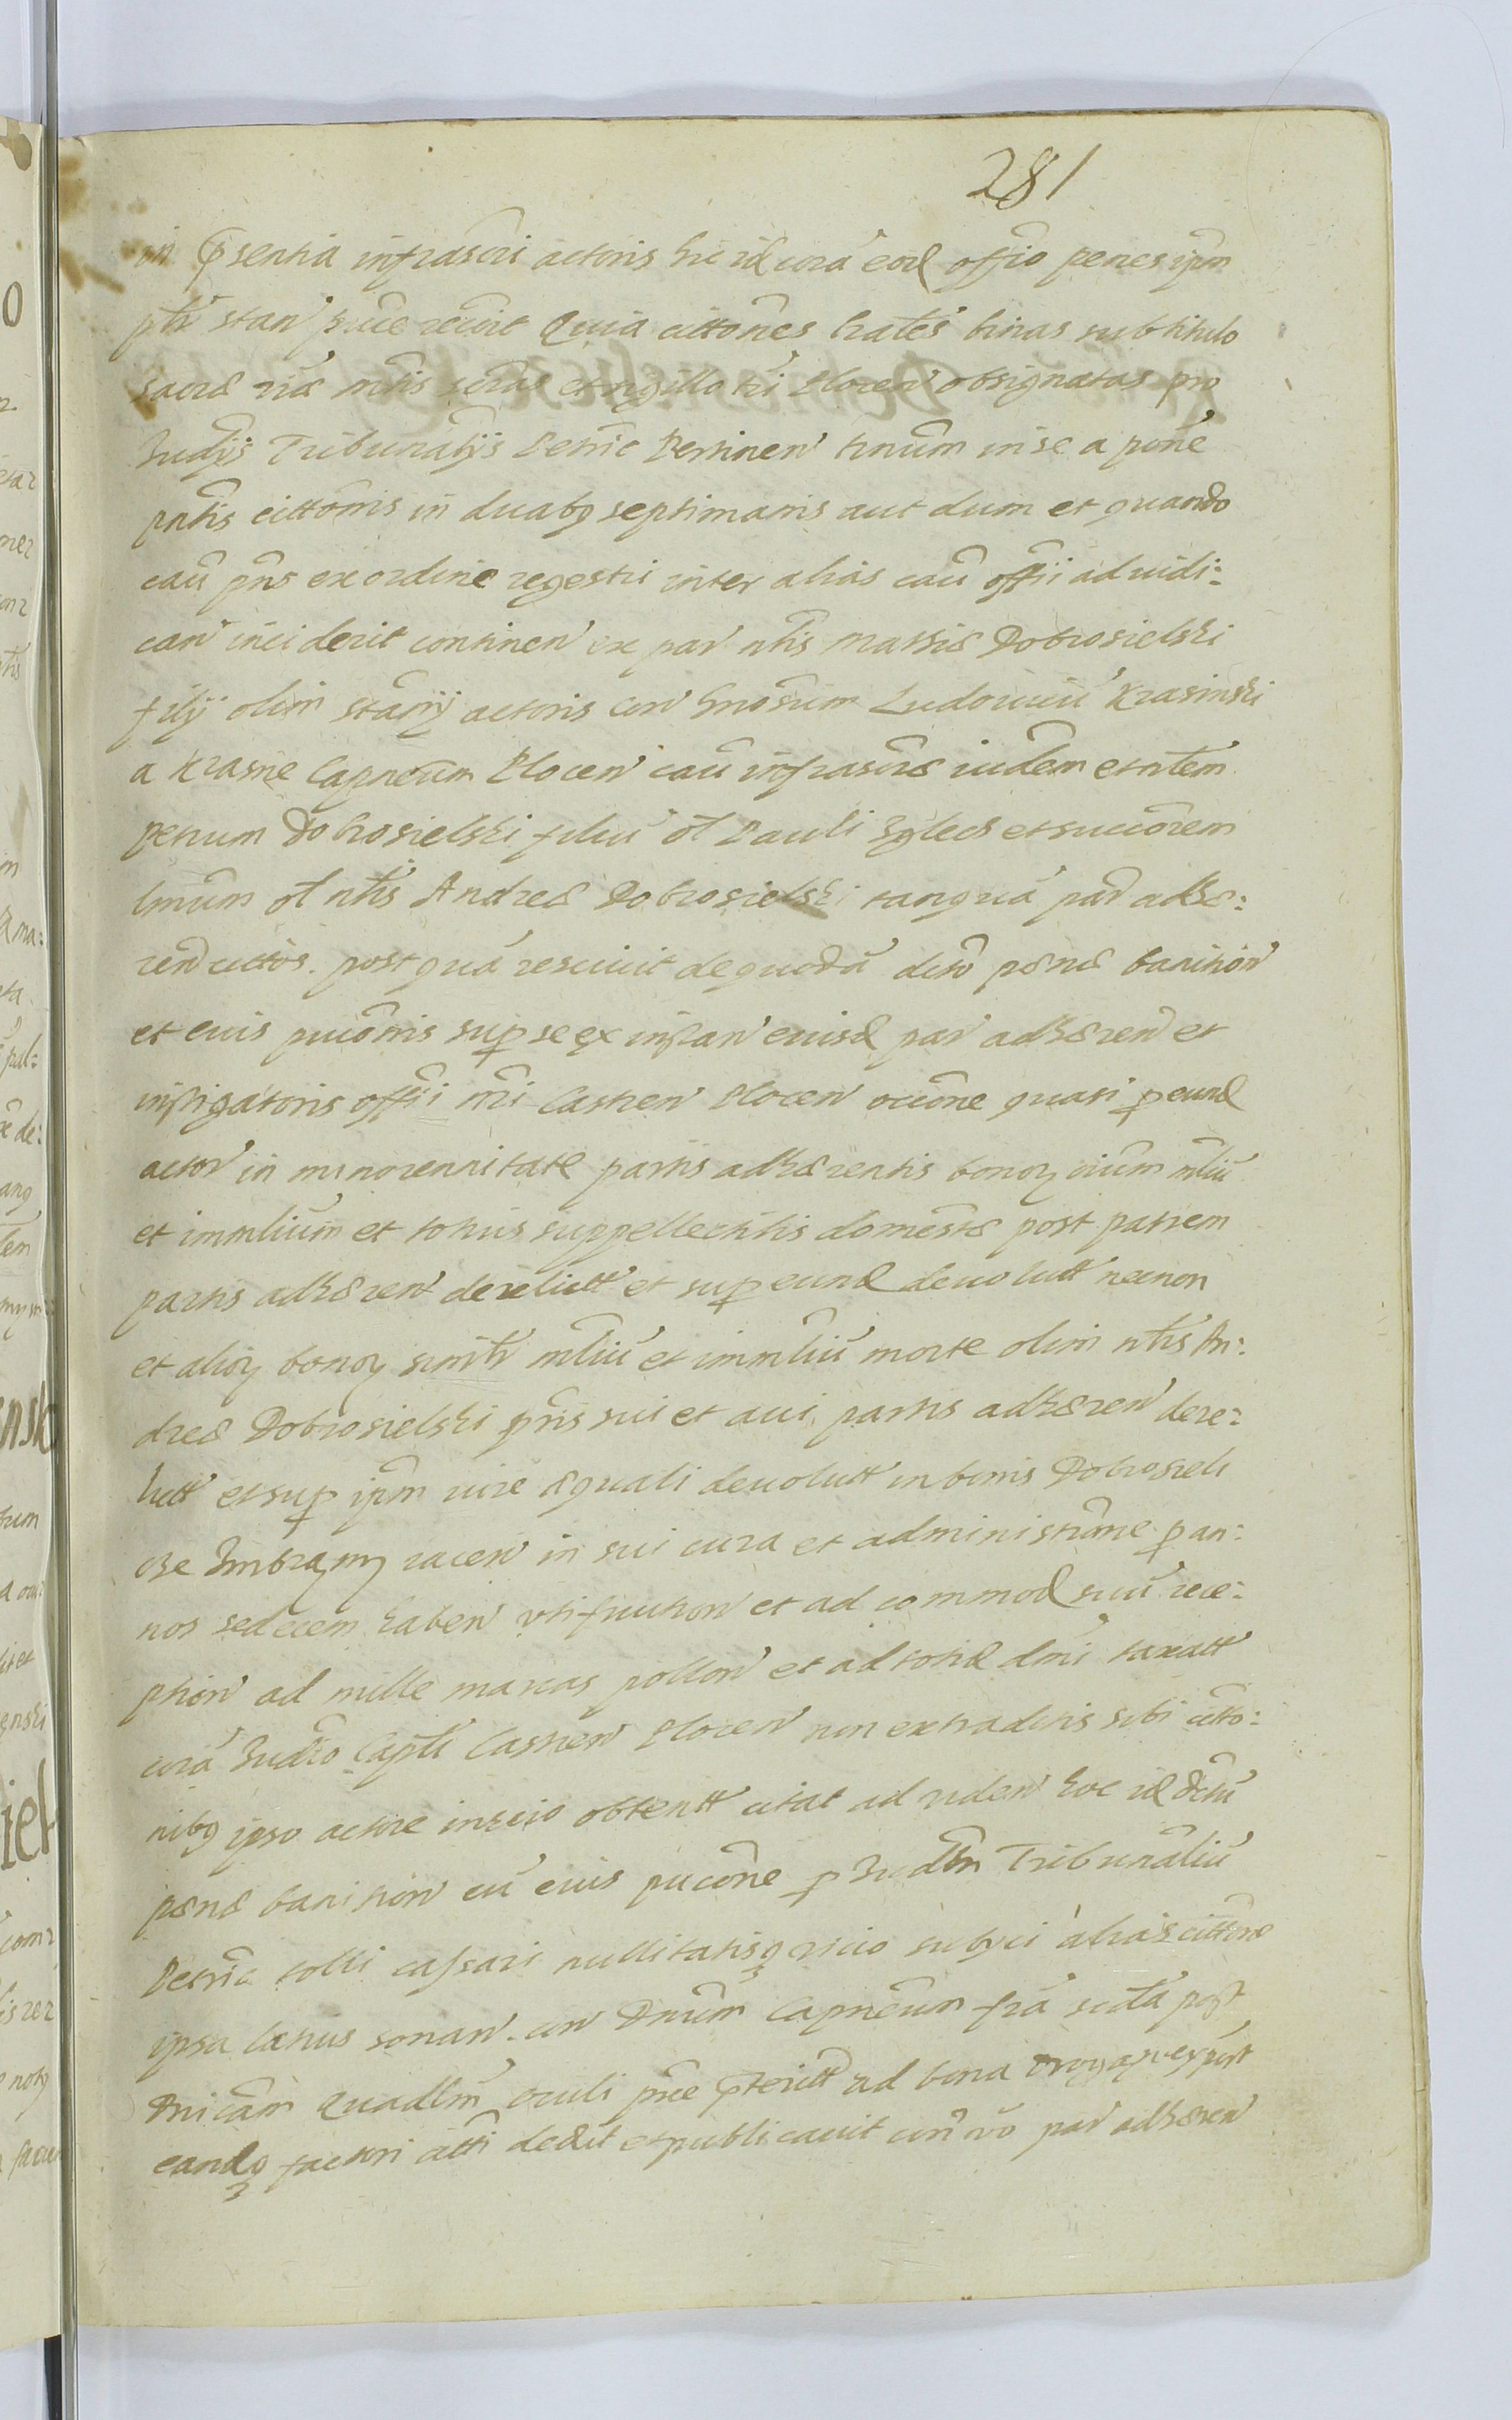 281
in p̃sentia infrascri actoris hic id corã eod offio penes ipm
ptr stan huic recoit Quia cittones lrates binas sub titulo
sacrę rię mtis scras et sigillo tri Plocen obsignatas pro
Judijs Tribunalijs Petric Pertinen tnum in se a pone
pntis cittonis in duabq septimanis aut dum et quando
cau pns ex ordine regestri inter alias cau offii ad iudi:
can inciderit continen ex par nlis Mathię Dobrosielski
filij olim stanij actoris con Gnosum Ludouicu Krasinski
a Krasne Capneum Plocen cau infrascrę iudem et nlem
petrum Dobrosielski filiu ol Pauli et succorem
lmum ol nlis Andreę Dobrosielski tanquã par adhę:
ren cittos. postquã resciuit de quodã dcto pęnę banition
et euis pucõnis sup se ex instan euisd par adhęren et
instigatoris offii nri Castren Plocen occõne quasi p eund
actor in minorennitate partis adhęrentis bonor oium mliu
et immlium et totius suppellectilis domestę post patrem
partis adhęren derelictt et sup eund deuolutt necnon
et alior bonor similr mliu et immliu morte olim nlis An:
dreę Dobrosielski pris sui et aui partis adhęren dere:
lictt et sup ipm iure ęquali deuolutt in bonis Dobrosieli
iacen in sui cura et administrõne p an:
nos sedecem haben vtifruition et ad commod suu rece:
ption ad mille marcas pollon et ad totid dmi taxatt
corã Judio Capli Castren Plocen non extraditis sibi citto:
nibq ipso actore inscio obtentt citat ad viden hoc id dctu
pęnę banition cu euis pucõne p Judm Tribunaliu
Petric tolli cassari nullitatisq vicio subijci alias cittone
ipsa latius sonan. con Dnum Capneum fria scda post
Dnicam Quadlm oculi pne pteritt ad bona
eandq factori atti dedit et publicauit con vo par adhęren